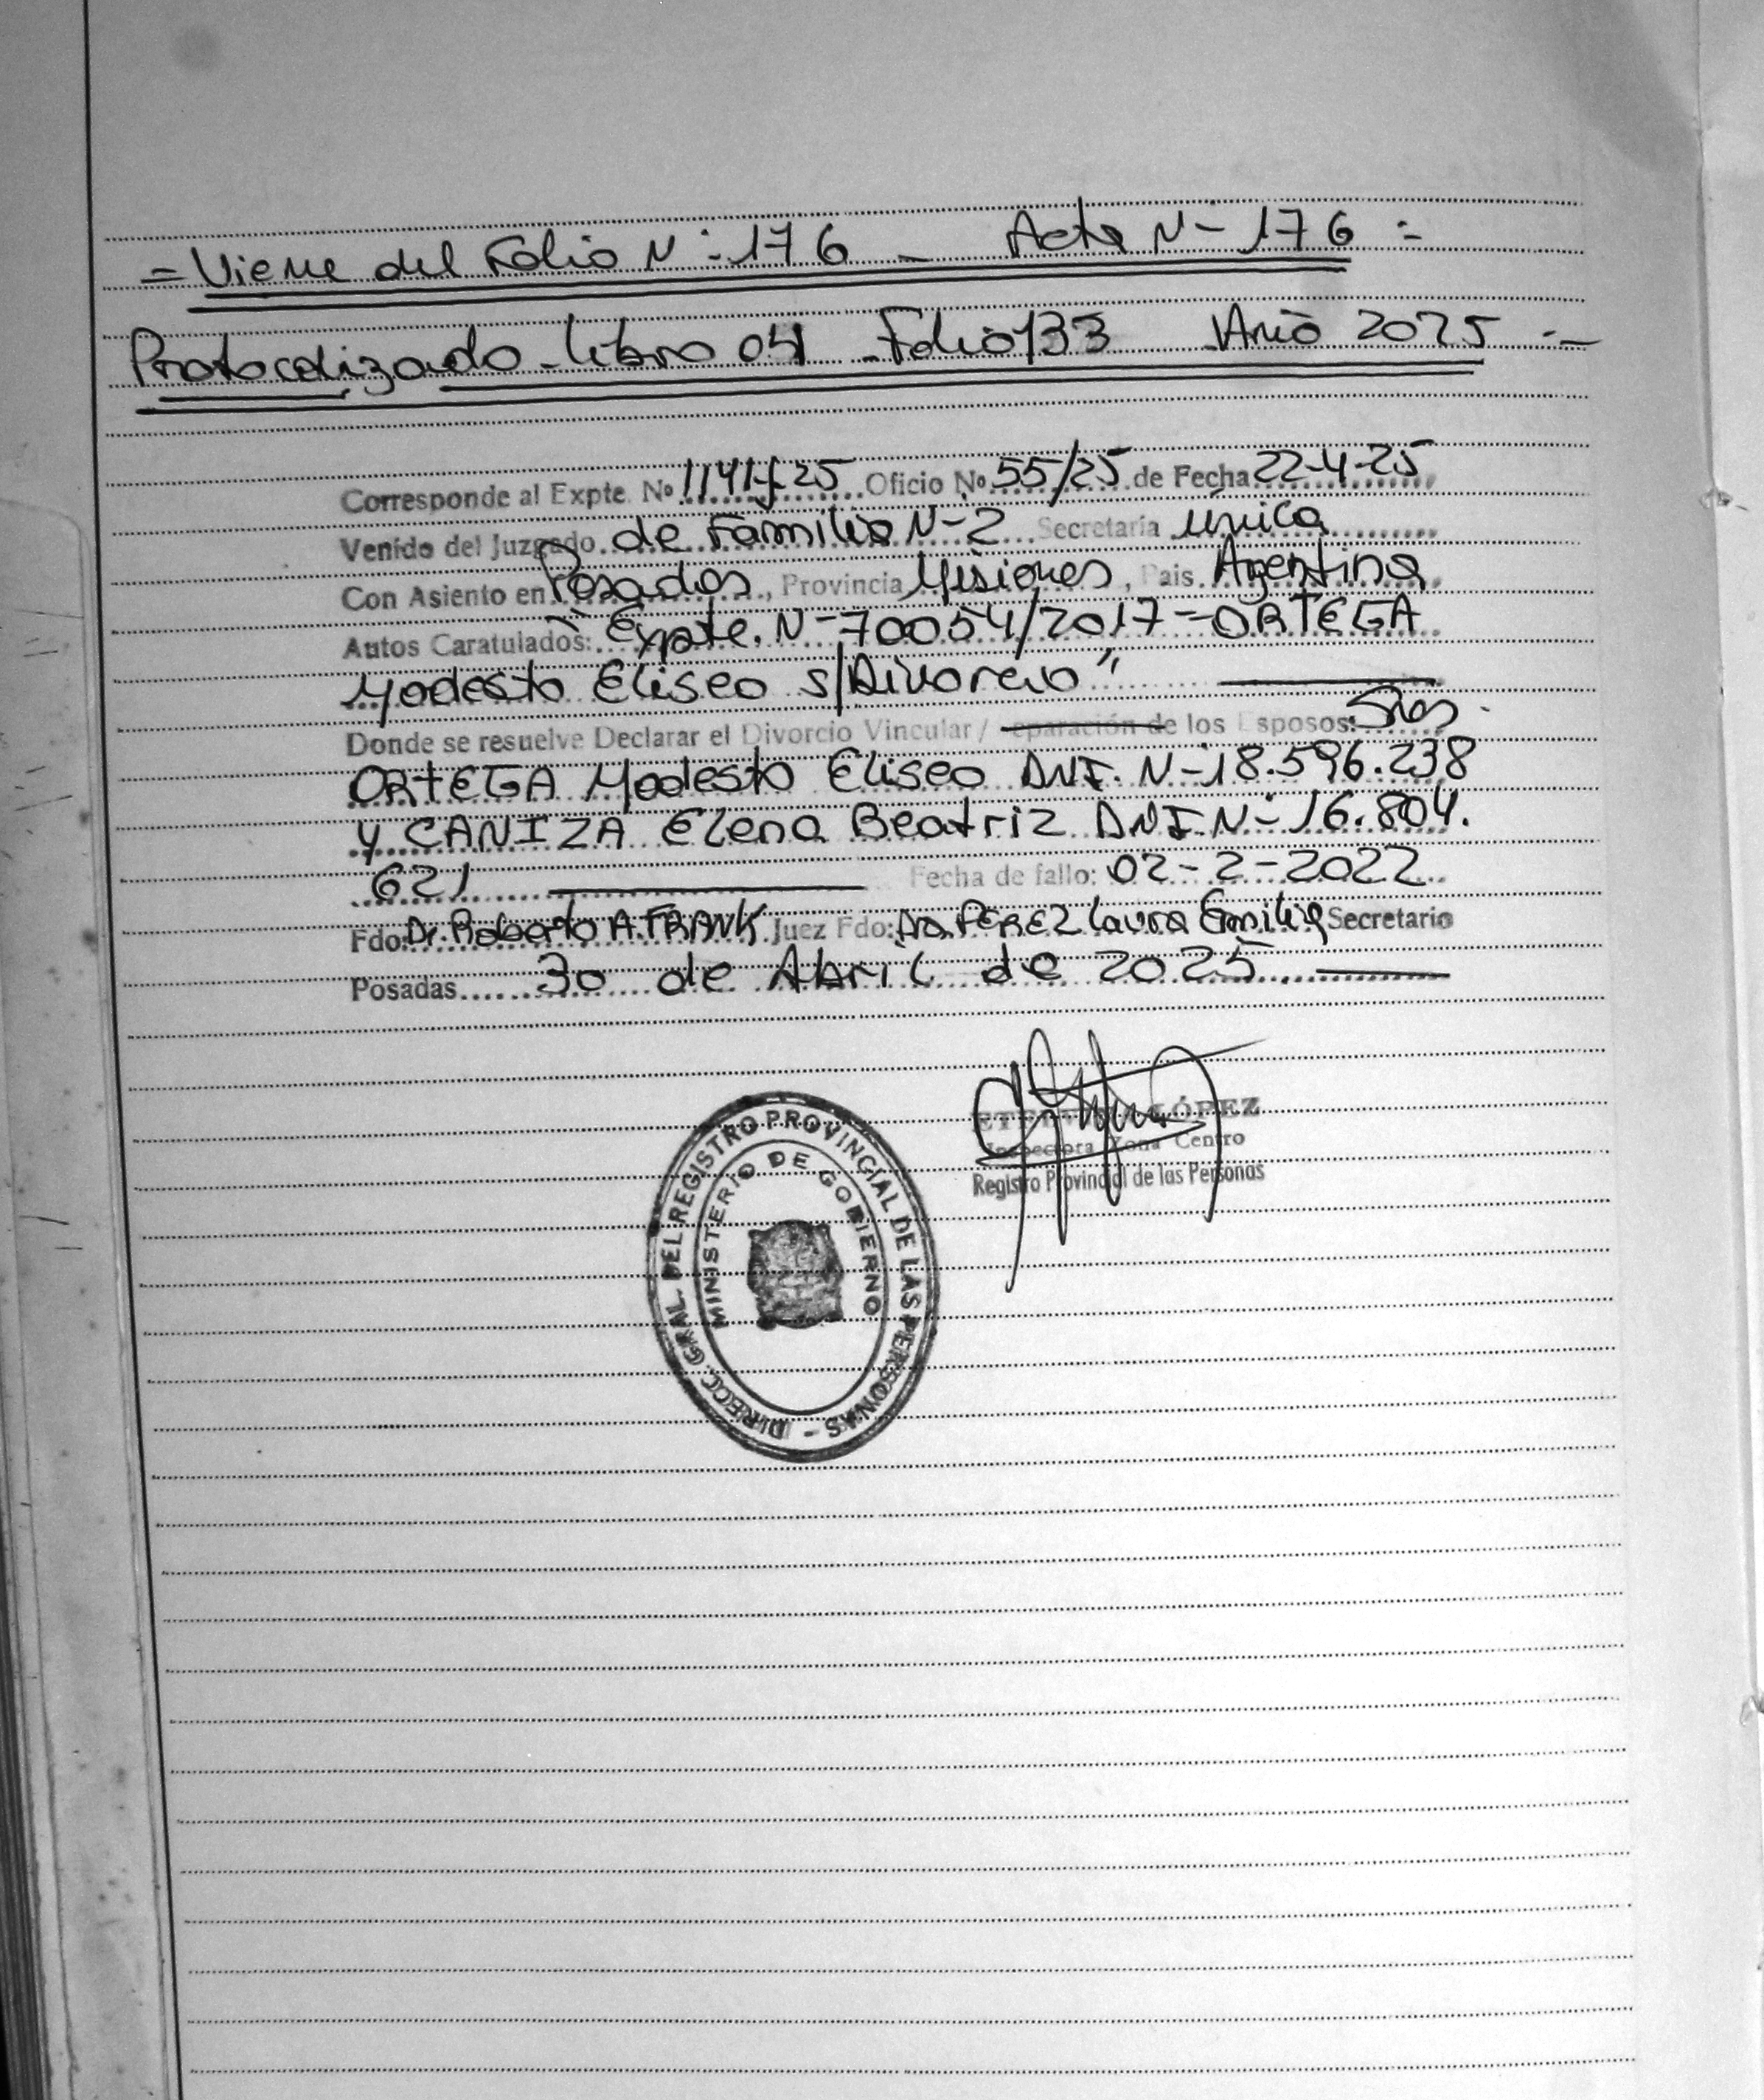 = Viene del Folio N-: 176 - Acta N- 176 =
Protocolizado - libro 04 - Folio 133 Año 2025 =
Corresponde al Expte. Nº 1141-f-25 Oficio Nº 55/25 de Fecha 22-4-25
Venido del Juzgado de Familia N-2 Secretaría única
Con Asiento en Posadas, Provincia Misiones, Pais Argentina
Autos Caratulados: "Expte. N- 70054/2017 - ORTEGA
Modesto Eliseo s/Divorcio"
Donde se resuelve Declarar el Divorcio Vincular / eparación de los Esposos: Sres.
ORTEGA Modesto Eliseo DNI. N- 18.596.238
y CANIZA Elena Beatriz DNI N- 16.804.
621 Fecha de fallo: 02-2-2022
Fdo: Dr. Roberto A. FRANK Juez Fdo: Dra PEREZ Laura Emilia Secretario
Posadas 30 de Abril de 2025
LÓPEZ
Inspectora Zona Centro
Registro Provincial de las Personas
DIRECC. GRAL. DEL REGISTRO PROVINCIAL DE LAS PERSONAS -
MINISTERIO DE GOBIERNO